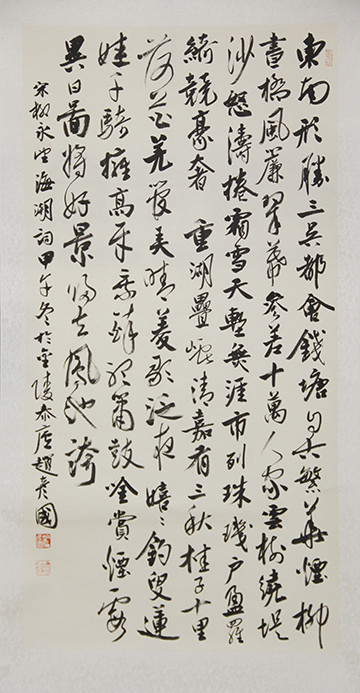 東南形勝三吳都會錢塘自古繁華煙柳
畫橋風簾翠幕參差十萬人家雲樹繞堤
沙怒濤捲霜雪天塹無涯市列珠璣戶盈羅
綺競豪奢 重湖疊巘清嘉有三秋桂子十里
荷花羌管弄晴菱歌泛夜嬉〻釣叟蓮
娃千騎擁高牙乘醉聽簫鼓吟賞煙霞
異日圖將好景歸去鳳池誇
宋柳永望海潮詞甲午冬於金陵泰趙彥國